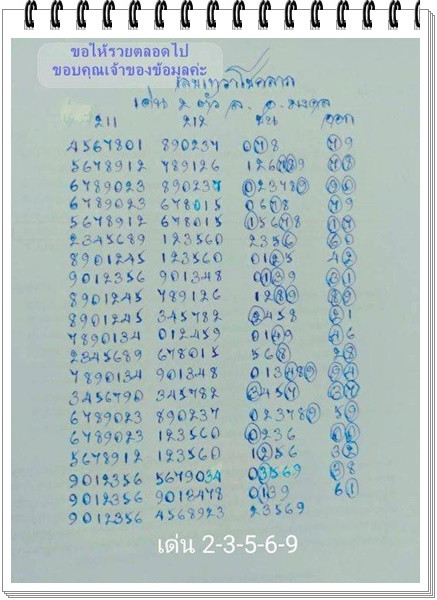 ขอให้รวยตลอดไป
ขอบคุณเจ้าของข้อมูลค่ะ
เด่น 2 ตัว
211 212 ชน ออก
4567801 890237 078 79
5678912 789126 126789 98
6789023 890237 023789 90
6789023 678015 0678 17
5678912 678015 15678 17
2345689 123560 2356 60
8901245 123560 0125 42
9012356 901348 0139 31
8901245 789126 1289 89
8901245 345782 2458 21
7890134 012459 0149 46
2345689 678015 568 28
7890134 901348 013489 94
3456790 345782 3457 37
6789023 890237 023789 59
6789023 123560 0236 06
5678912 123560 1256 32
9012356 5679034 03569 38
9012356 9013478 0139 61
9012356 4568923 23569
เด่น 2-3-5-6-9